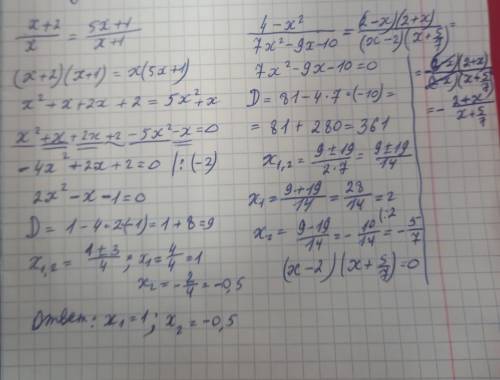 (x+2)/x = (5x+1)/(x+1)
(x+2)(x+1) = x(5x+1)
x²+x+2x+2=5x²+x
x²+x+2x+2-5x²-x=0
-4x²+2x+2=0 |:(-2)
2x²-x-1=0
D= 1-4·2(-1)=1+8=9
x₁,₂ = (1±3)/4; x₁=4/4=1
x₂=-2/4=-0,5
Ответ: x₁=1; x₂=-0,5
(4-x²)/(7x²-9x-10) = (2-x)(2+x)/((x-2)(x+5/7)) =
7x²-9x-10=0
D=81-4·7·(-10)=
=81+280=361
x₁,₂= (9±19)/(2·7) = (9±19)/14
x₁= (9+19)/14 = 28/14 = 2
x₂= (9-19)/14 = -10/14 (:2 = -5/7
(x-2)(x+5/7)=0
= (2-x)(2+x)/((x-2)(x+5/7)) =
= - (2+x)/(x+5/7)